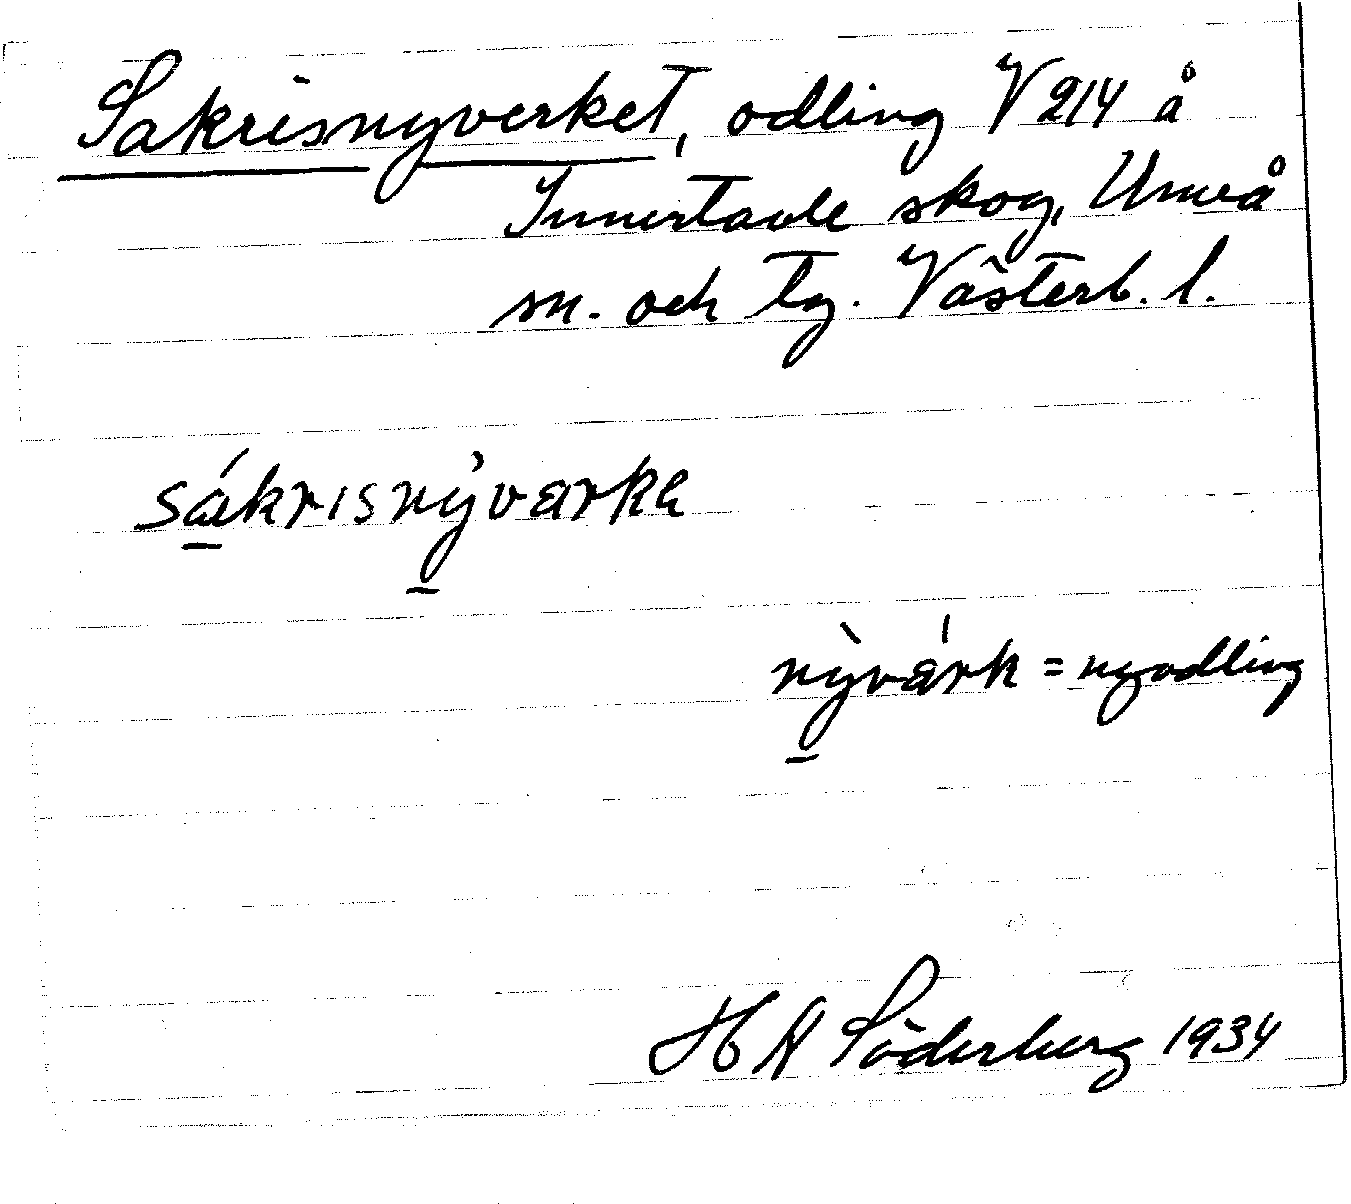 Sakrisnyverket, odling V 214 å
Innertavle skog, Umeå
sn. och tg. Västerb. l.
sákrisnỳvɛrkɐ
nỳvɛ́rk = nyodling
H A Söderberg 1934